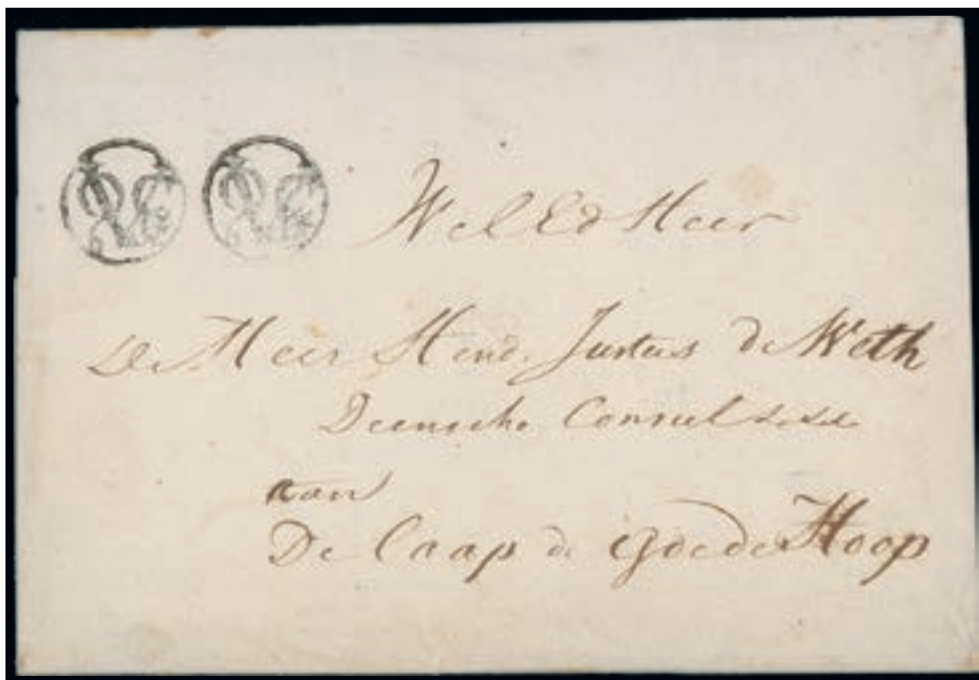 Wel Ed Heer
De Heer Hend. Justus de Weth
Deensche Consul
aan
De Caap de Goede Hoop